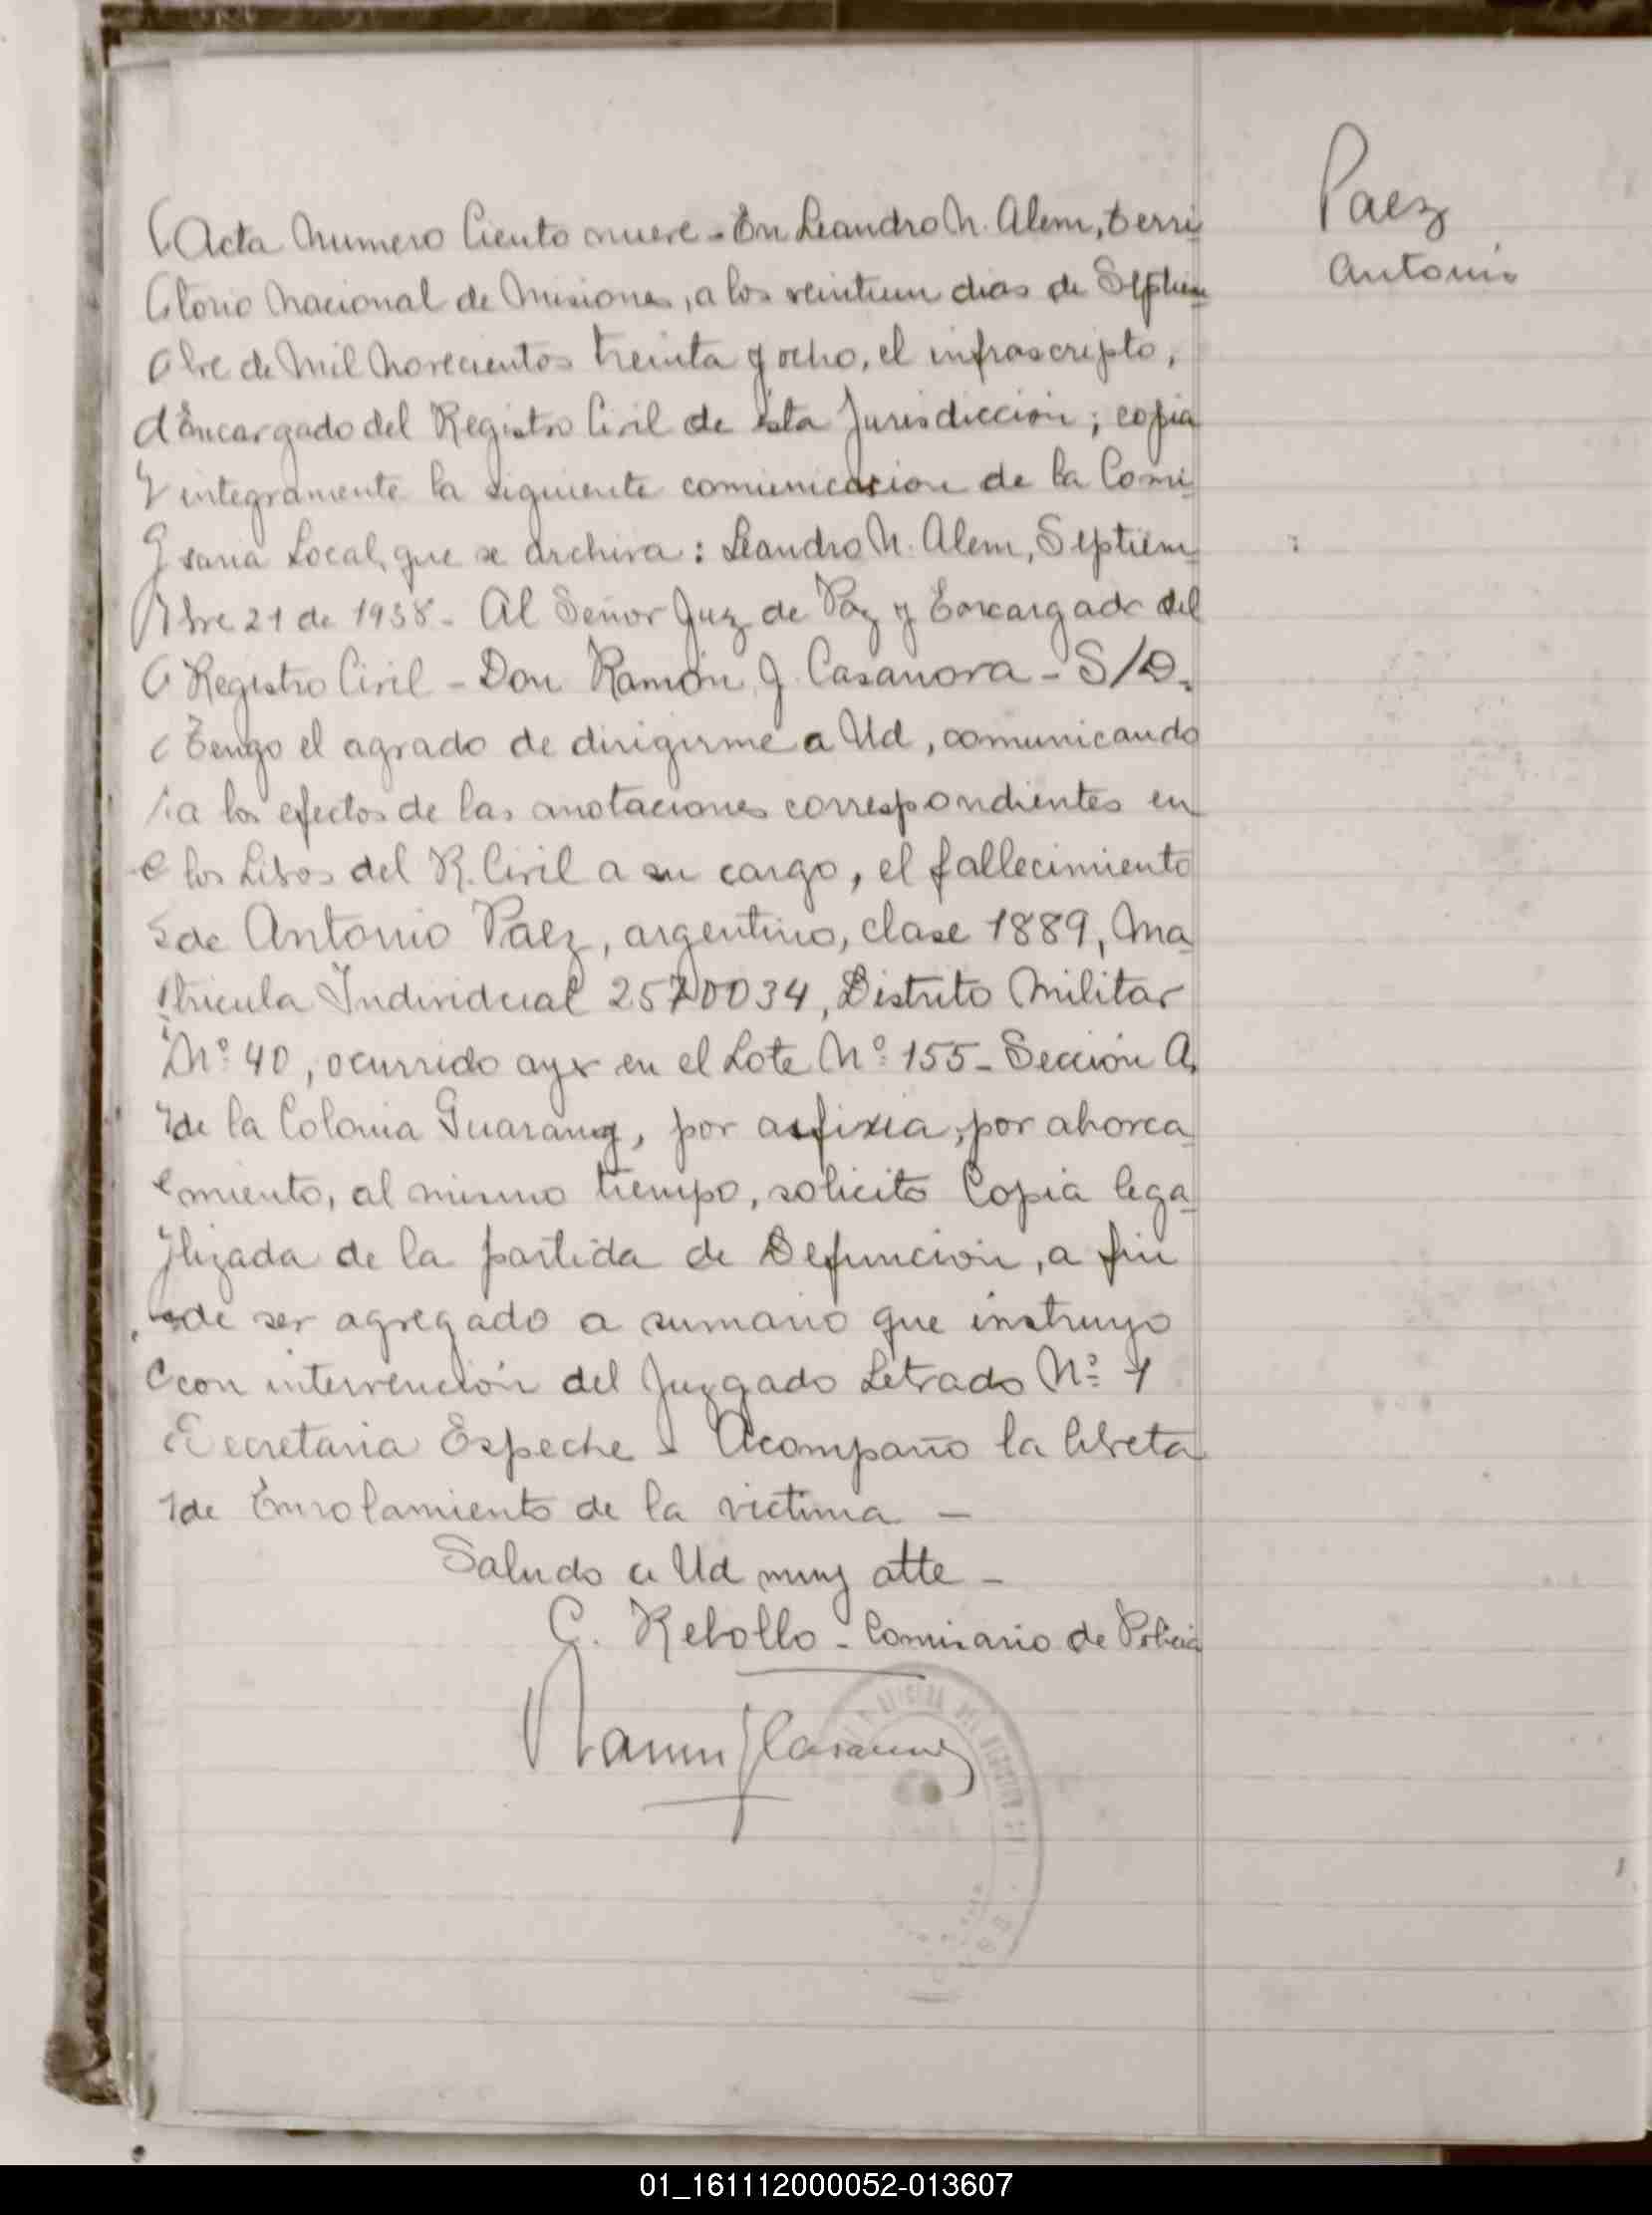 Paez
Antonio
Acta Numero Ciento nueve - En Leandro N. Alem, Terri
torio Nacional de Misiones, a los veintiun dias de Septiem
bre de Mil Novecientos treinta y ocho, el infrascripto,
Encargado del Registro Civil de ésta Jurisdicción; copia
integramente la siguiente comunicacion de la Comi
saria Local, que se archiva: Leandro N. Alem, Septiem
bre 21 de 1938 - Al Señor Juez de Paz y Encargado del
Registro Civil - Don Ramón J. Casanova - S/D.
Tengo el agrado de dirigirme a Ud, comunicando
a los efectos de las anotaciones correspondientes en
los Libros del R. Civil a su cargo, el fallecimiento
de Antonio Paez, argentino, clase 1889, Ma
tricula Individual 2570034, Distrito Militar
Nº 40, ocurrido ayer en el Lote Nº 155 - Sección A,
de la Colonia Guarany, por asfixia, por ahorca
miento, al mismo tiempo, solicito Copia lega
lizada de la partida de Defunción, a fin
de ser agregado a sumario que instruyo
con intervención del Juzgado Letrado Nº 1
Secretaria Espeche - Acompaño la libreta
de Enrolamiento de la victima -
Saludo a Ud muy atte -
C. Rebollo - Comisario de Policia
Ramon J Casanova
01_161112000052-013607